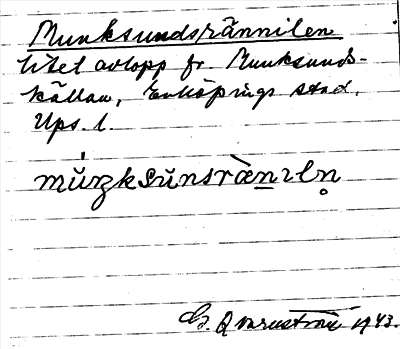 Munksundsrännilen
litet avlopp fr. Munksunds-
källan, Enköpings stad.
Ups. l.
G. Qvarnström 1943.